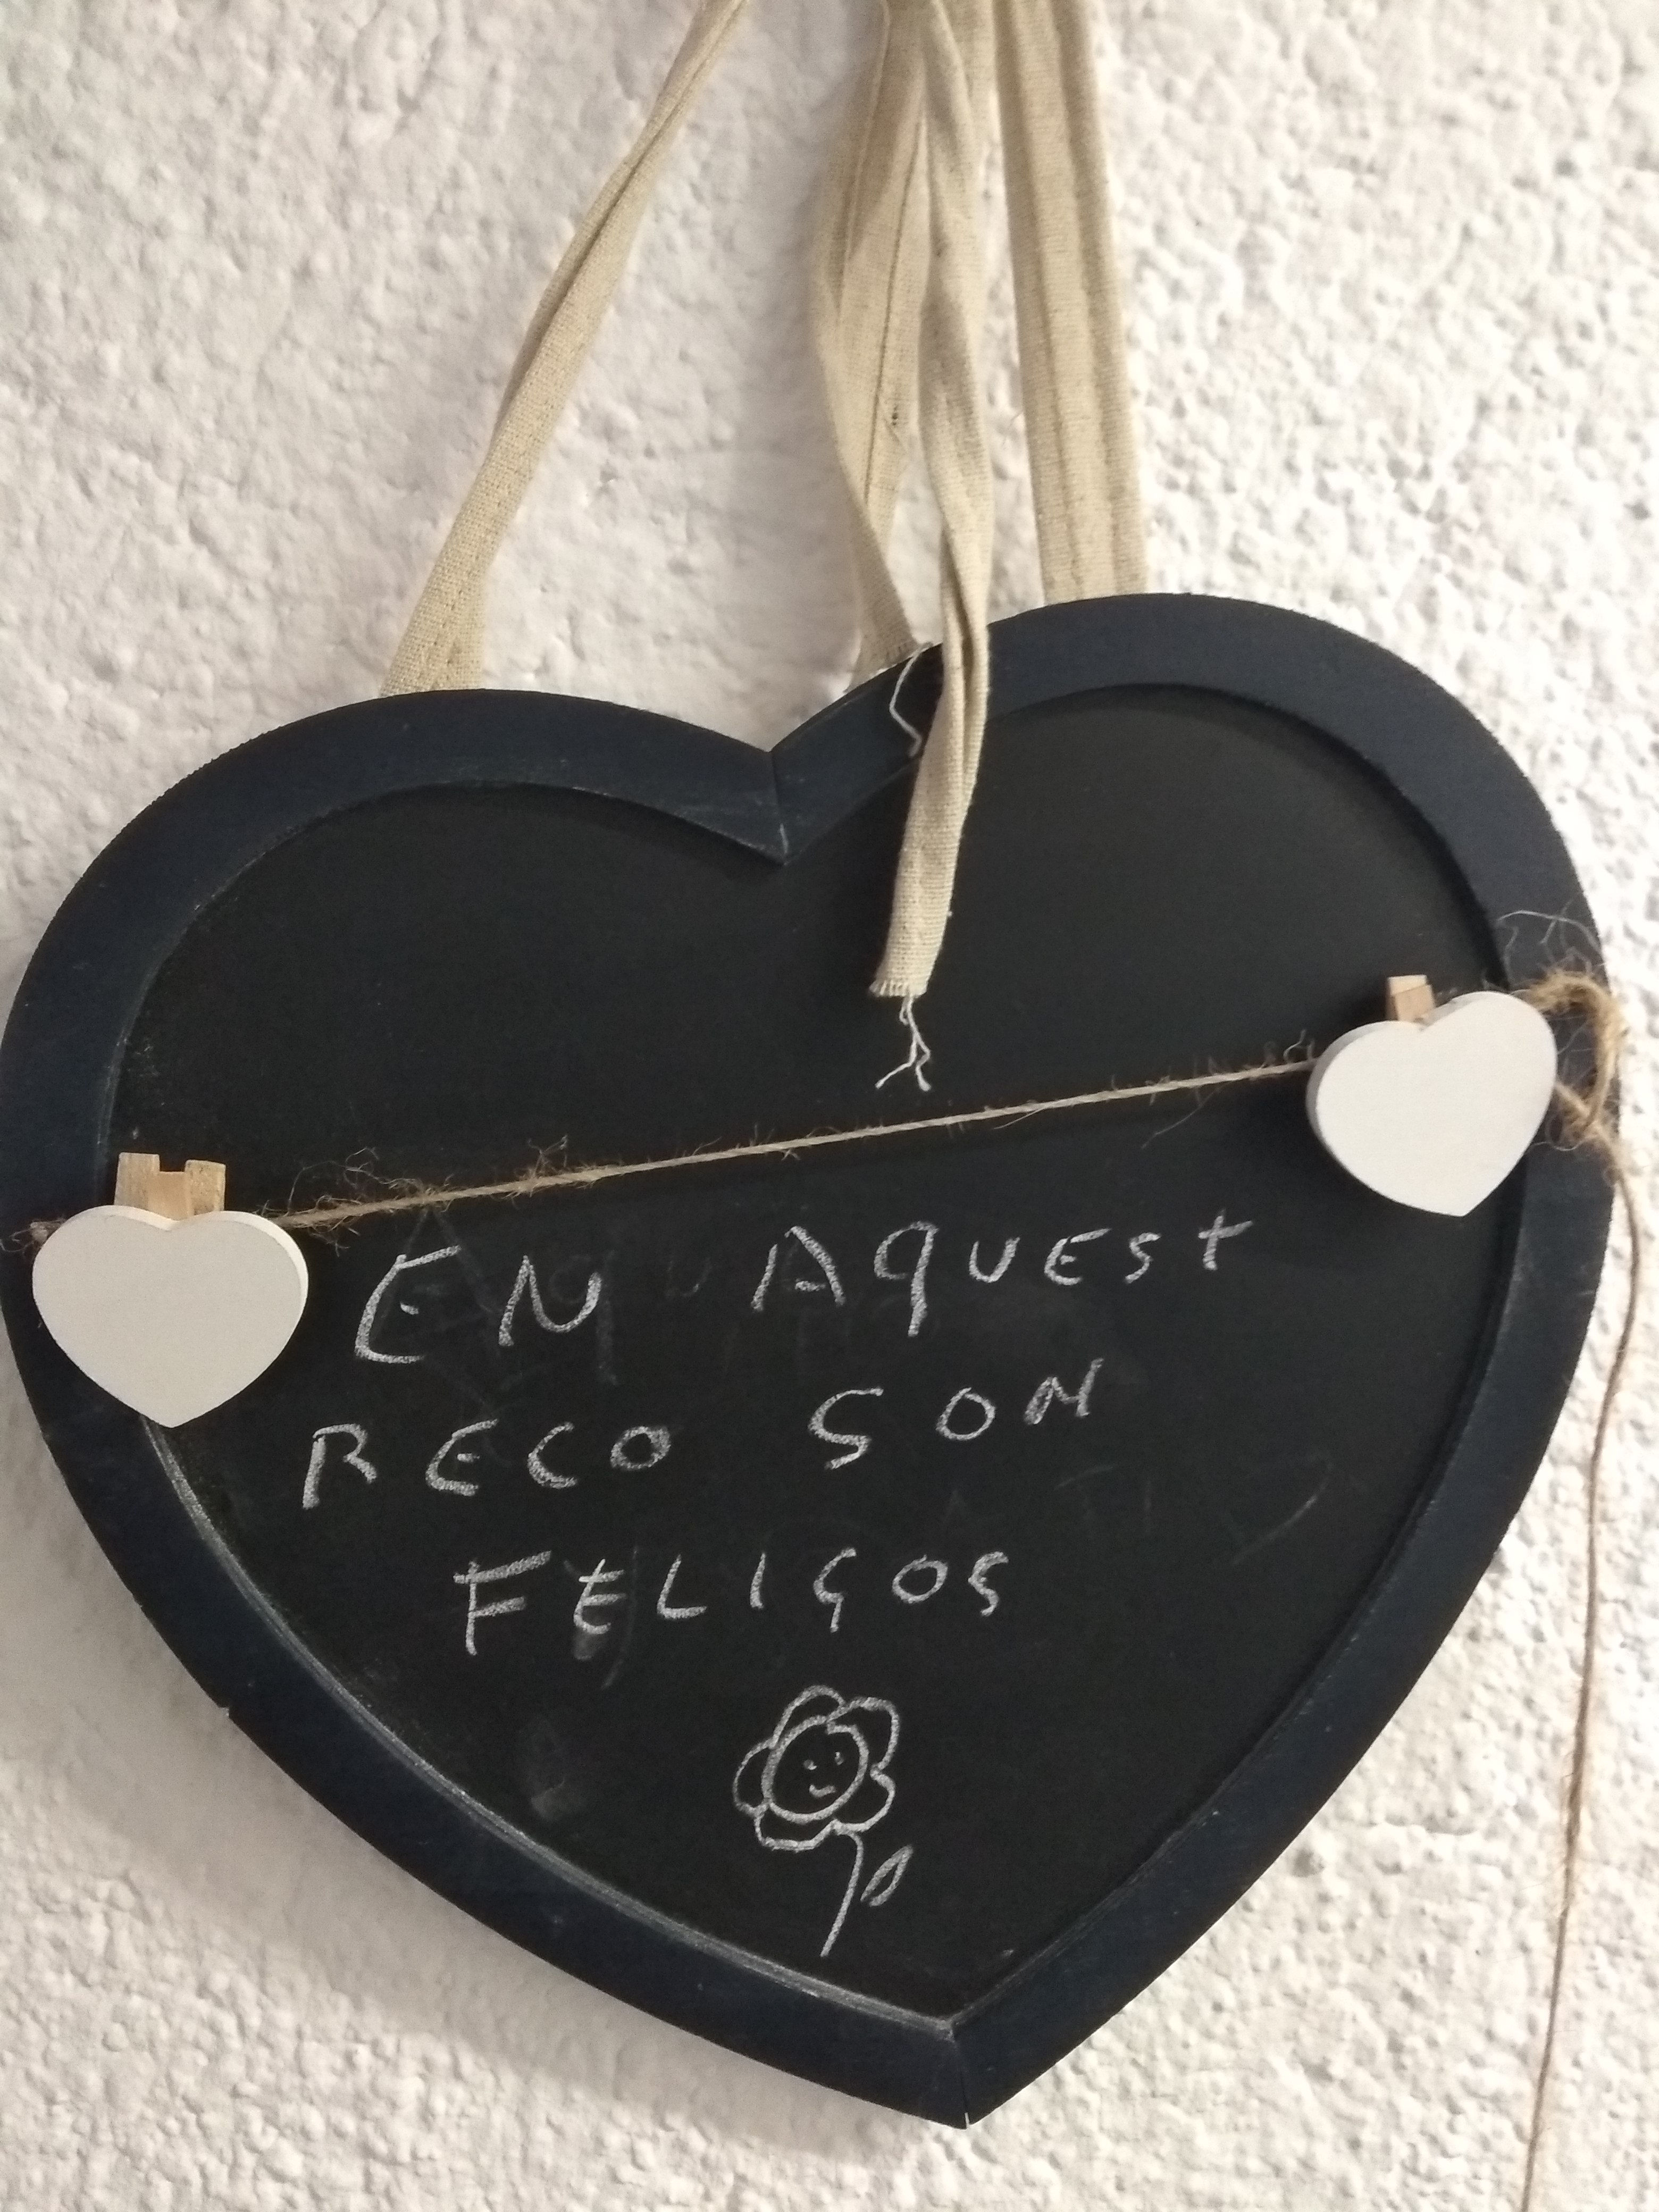 EN AQUEST
RECO SON
FELIÇOS